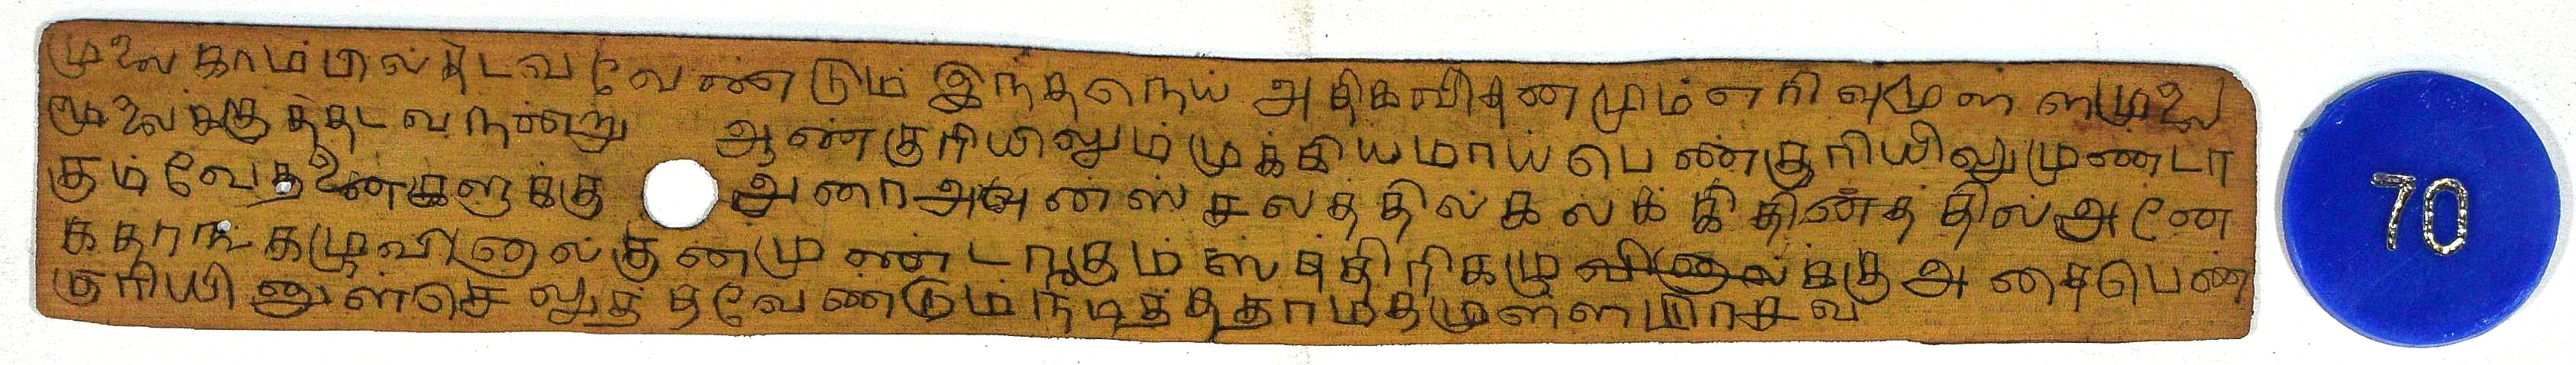 முலை காம்பில் தடவ வேண்டும் இந்த நெய் அதிகவிதனமும் எரிவுமுள்ள முலை
மூலைக்கு த்தடவ நன்று ஆண்குரியிலும் முக்கியமாய் பெண்குரியிலுமுண்டா
கும் வேதனைகளுக்கு அனாஅன் ஸ் சலத்தில் கலக்கி தின்தத்தில் அனே
கதரங் கழுவினால் குனமுண்டாகும் ஸ்த்திரி கழுவினால்க்கு அதைபெண்
குரியினுள் செலுத்த வேண்டும் நடித்த தாமதமுள்ள பிரசவ
70